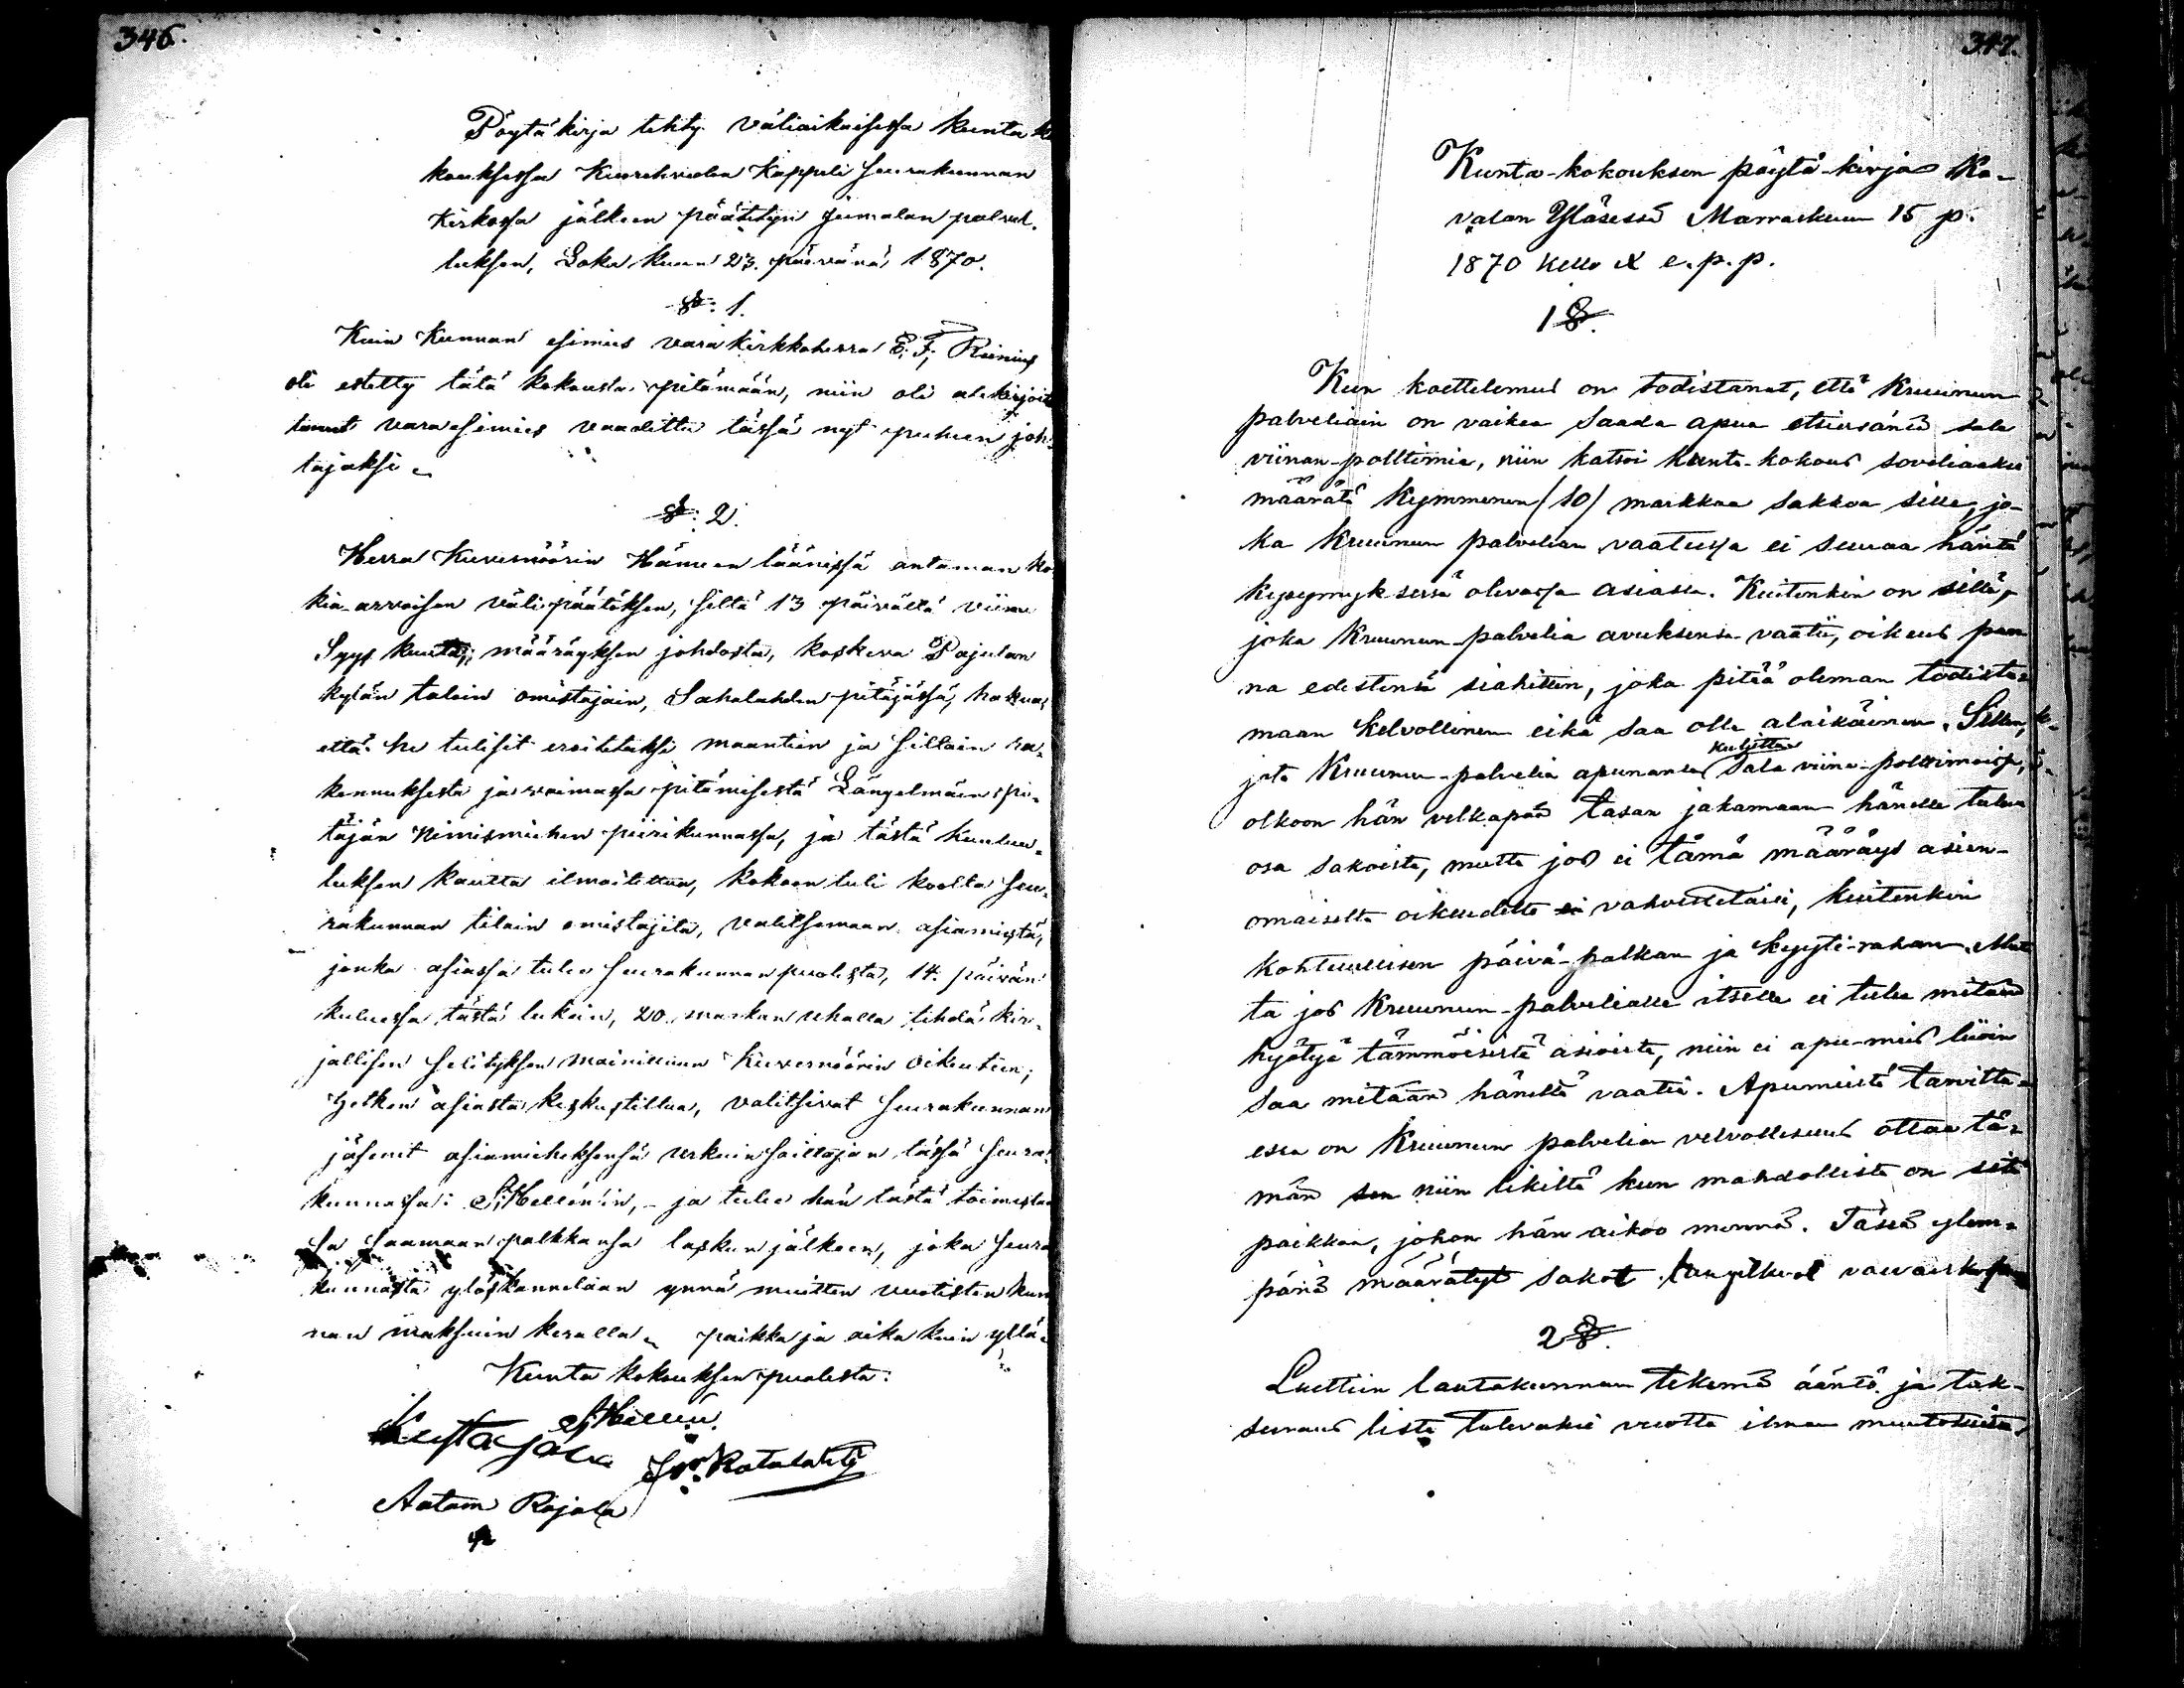 346.
Pöytäkirja tehty väliaikaisessa kunta ko
kouksessa Kuorehveden Kappeli seurakunnan
Kirkossa jälkeen päätetyn jumalan palvel-
luksen, Loka kuun 23. päivänä 1870.
§: 1.
Kuin Kunnan esimies varakirkkoherra E. F. Reinius
oli estetty tätä kokousta pitämään, niin oli allekirjoit
tanut varaesimies vaadittu tässä nyt puheen joh-
tajaksi.
§: 2.
Herra Kuvernöörin Hämeen läänissä antaman kor
kia-arvoisen välipäätöksen, siltä 13 päivältä viime
Syys kuuta, määräyksen johdosta, koskeva Pajulan
kylän taloin omistajain, Sahalahden pitäjässä, hakua,
että he tulisit eroitetuksi maantien ja siltain ra-
kennuksesta ja voimassa pitämisestä Längelmäen pi-
täjän Nimismiehen piirikunnassa, ja tästä kuulu-
tuksen kautta ilmoitettua, kokoon tuli koolta seu-
rakunnan tilain omistajita, valitsemaan asiamiestä,
jonka asiassa tulee seurakunnan puolesta, 14. päivän
kuluessa tästä lukein, 20. markan uhalla tehdä kir-
jallisen selityksen mainittuun Kuvernöörin oikeuteen;
hetken asiasta keskusteltua, valitsivat seurakunnan
jäsenet asiamieheksensä urkuin soittajan tässä seura-
kunnassa: S. Hellén'in, - ja tulee hän tästä toimesta
sa saamaan palkkansa laskun jälkeen, joka seura
kunnasta ylöskannetaan ynnä muitten vuotisten kun
nan maksuin keralla. paikka ja aika kuin yllä.
Kunta kokouksen puolesta:
S. Hellén.
Kusta Jala
Rotalahti
Aatam Rajala
347.
Kunta-kokouksen pöytä-kirja Ka-
valan Yläsessä Marraskuun 15 p.
1870 kello X e. p. p.
1 §.
Kun koettelemus on todistanut, että Kruunun
palveliain on vaikea saada apua etsiessänsä sala
viinan-polttimia, niin katsoi kunta-kokous soveliaaksi
määrätä kymmenen (10) markkaa sakkoa sille, jo-
ka Kruunun palvelian vaatiessa ei seuraa häntä
kysymyksessä olevassa asiassa. Kuitenkin on sillä,
joka Kruunun-palvelia avuksensa vaatii, oikeus pan
na edestensä siahisen, joka pitää oleman todista-
maan kelvollinen eikä saa olla alaikäinen. Sillen,
jota Kruunun-palvelia apunansa kuljettaa sala viina-polttimoissa,
olkoon hän velkapää tasan jakamaan hänelle tuleva
osa sakoista, mutta jos ei tämä määräys asian-
omaiselta oikeudelta ei vahvistetaisi, kuitenkin
kohtuullisen päivä-palkan ja kyyti-rahan. Mut
ta jos Kruunun-palvelialle itselle ei tule mitään
hyötyä tämmöisistä asioista, niin ei apu-mies liioin
saa mitään häneltä vaatia. Apumiestä tarvitta-
essa on Kruunun palvelian velvollisuus ottaa tä-
män sen niin likiltä kun mahdollista on sitä
paikkaa, johon hän aikoo mennä. Tässä ylem-
pänä määrätyt sakot lankeevat vaivaiskassaan
2 §.
Luettiin lautakunnan tekemä ääntö ja tak-
seeraus lista tulevaksi vuotta ilman muutoksita